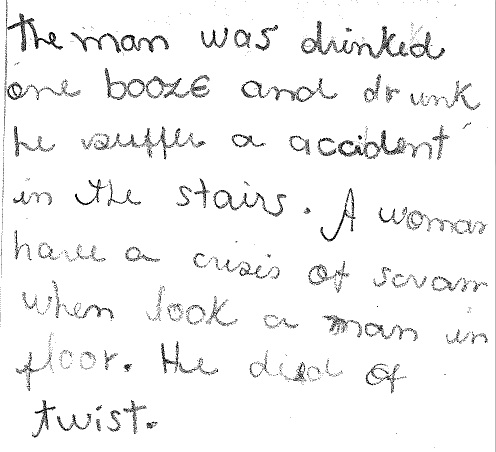 The man was drinked
one booze and drunk
he suffer a accident
in the stairs. A woman
have a crisis of scram
when look a man in
floor. He died of
twist.